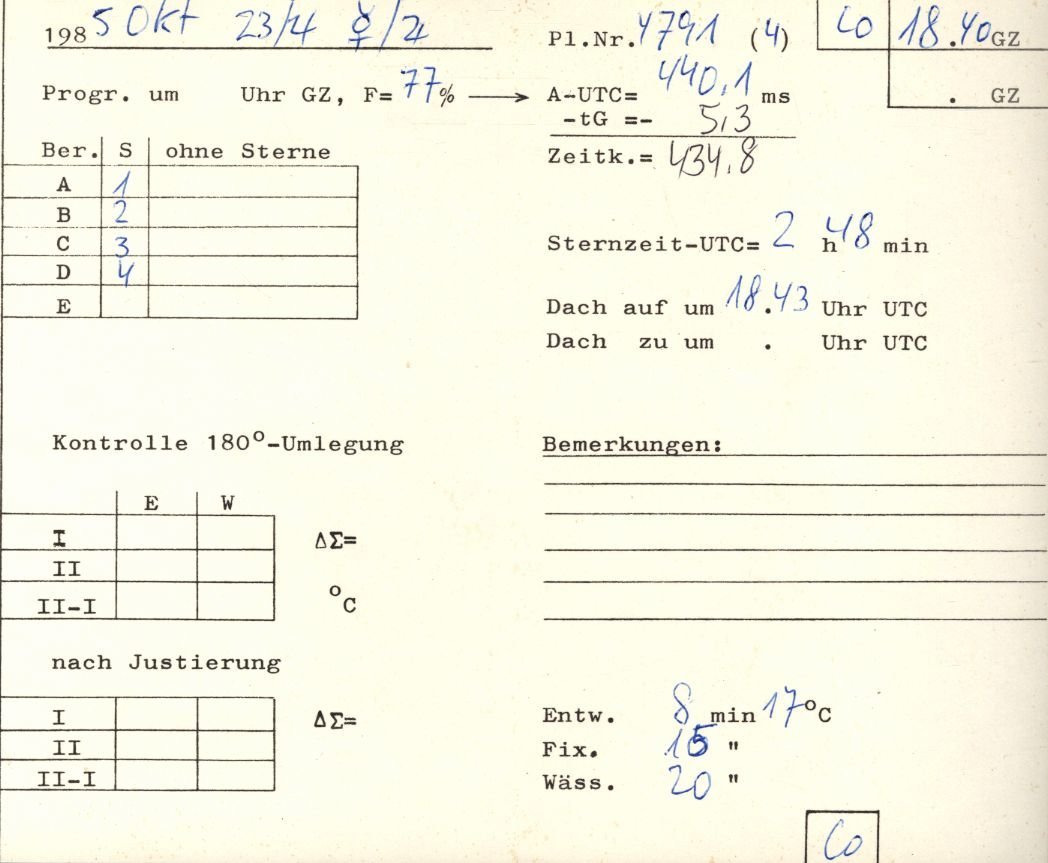 1985 Okt 23/4 ☿/♃ Pl.Nr. 4791 (4) Co 18.40 GZ
. GZ
Progr. um Uhr GZ, F= 77% → A-UTC= 440,1 ms
-tG =- 5,3
Zeitk.= 434,8
Ber. S ohne Sterne
A 1
B 2
C 3
D 4
E
Sternzeit-UTC= 2 h 48 min
Dach auf um 18.43 Uhr UTC
Dach zu um . Uhr UTC
Kontrolle 180°-Umlegung
E W
I ΔΣ=
II
II-I °C
Bemerkungen:
nach Justierung
I ΔΣ=
II
II-I
Entw. 8 min 17°C
Fix. 15 "
Wäss. 20 "
Co